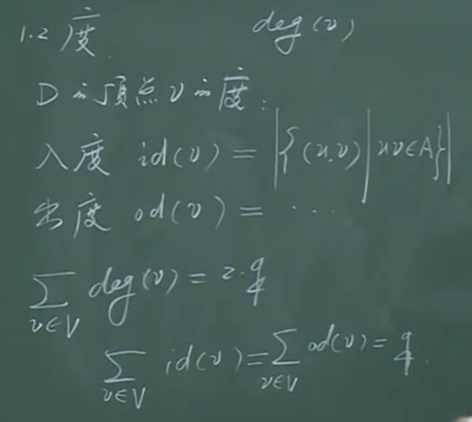 1.2 度. deg(v)
D的顶点v的度:
入度 id(v) = |{(u,v)|uv∈A}|
出度 od(v) = ...
∑_{v∈V} deg(v) = 2·q
∑_{v∈V} id(v) = ∑_{v∈V} od(v) = q.